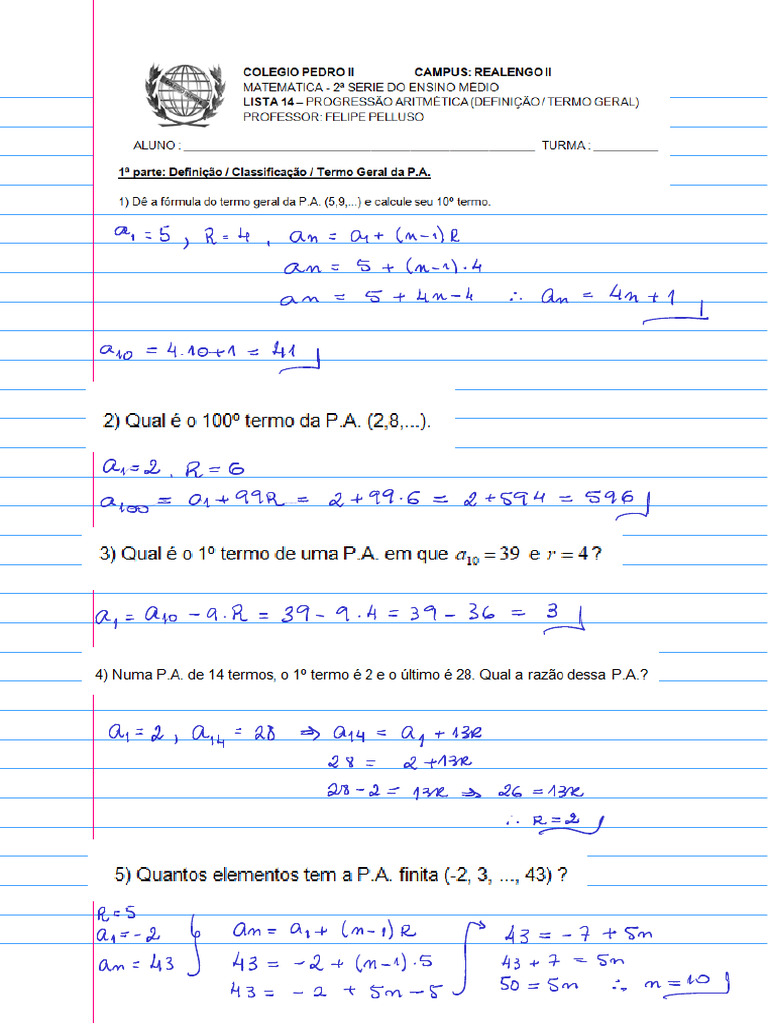 COLEGIO PEDRO II CAMPUS: REALENGO II
MATEMATICA - 2ª SERIE DO ENSINO MEDIO
LISTA 14 – PROGRESSÃO ARITMÉTICA (DEFINIÇÃO / TERMO GERAL)
PROFESSOR: FELIPE PELLUSO
ALUNO : ____________________ TURMA : __________
1ª parte: Definição / Classificação / Termo Geral da P.A.
1) Dê a fórmula do termo geral da P.A. (5,9,...) e calcule seu 10º termo.
a₁ = 5 , R = 4 , an = a₁ + (n-1)R
an = 5 + (n-1)·4
an = 5 + 4n - 4 ∴ an = 4n + 1
a₁₀ = 4.10+1 = 41
2) Qual é o 100º termo da P.A. (2,8,...).
a₁ = 2 , R = 6
a₁₀₀ = a₁ + 99R = 2 + 99·6 = 2 + 594 = 596
3) Qual é o 1º termo de uma P.A. em que a₁₀ = 39 e r = 4 ?
a₁ = a₁₀ - 9.R = 39 - 9.4 = 39 - 36 = 3
4) Numa P.A. de 14 termos, o 1º termo é 2 e o último é 28. Qual a razão dessa P.A.?
a₁ = 2 , a₁₄ = 28 ⇒ a₁₄ = a₁ + 13R
28 = 2 + 13R
28 - 2 = 13R ⇒ 26 = 13R
∴ R = 2
5) Quantos elementos tem a P.A. finita (-2, 3, ..., 43) ?
R = 5
a₁ = -2
an = 43
an = a₁ + (n-1)R
43 = -2 + (n-1)·5
43 = -2 + 5n - 5
43 = -7 + 5n
43 + 7 = 5n
50 = 5n ∴ n = 10